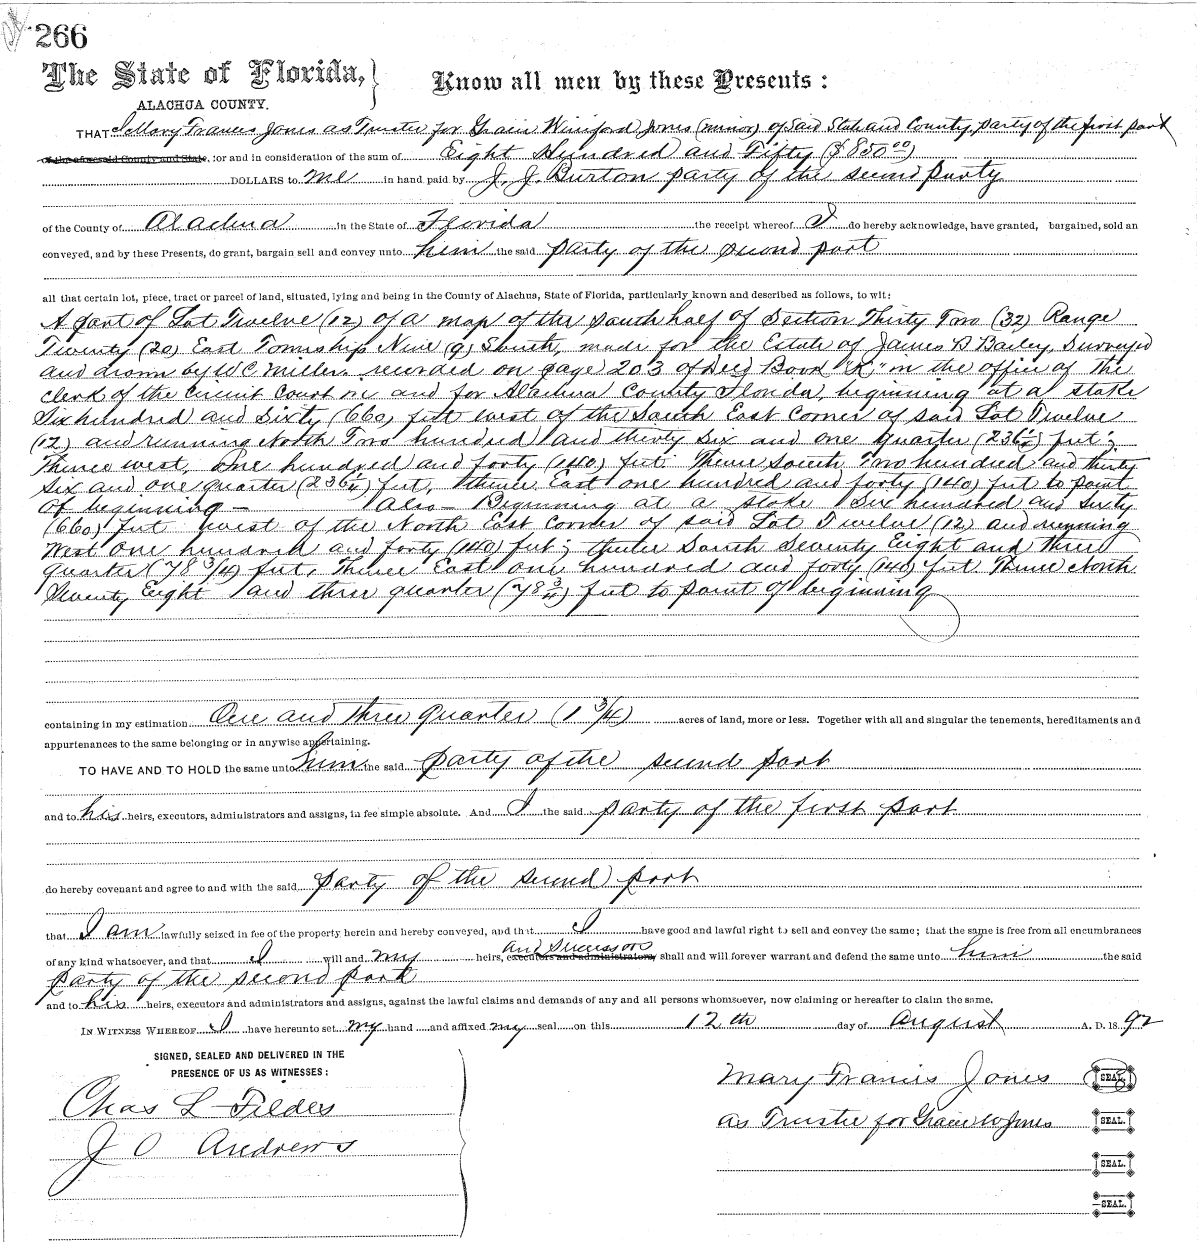 266
The State of Florida,
ALACHUA COUNTY.
Know all men by these Presents:
THAT I Mary Francis Jones as Trustee for Gracie Winiford Jones (minor) of Said State and County, party of the first part
of the aforesaid County and State, for and in consideration of the sum of Eight Hundred and Fifty ($850.00)
DOLLARS to me in hand paid by J. J. Burton party of the second party
of the County of Alachua in the State of Florida the receipt whereof I do hereby acknowledge, have granted, bargained, sold an
conveyed, and by these Presents, do grant, bargain sell and convey unto him the said party of the second part
all that certain lot, piece, tract or parcel of land, situated, lying and being in the County of Alachua, State of Florida, particularly known and described as follows, to wit:
A part of Lot Twelve (12) of a map of the South half of Section Thirty Two (32) Range
Twenty (20) East Township Nine (9) South, made for the Estate of James B Bailey, Surveyed
and drawn by W C Miller. recorded on page 203 of Deed Book "K" in the office of the
clerk of the Circuit Court in and for Alachua County Florida, beginning at a stake
Six hundred and Sixty (660) feet west of the South East Corner of said Lot Twelve
(12) and running North Two hundred and thirty Six and one quarter (236 1/4) feet;
Thence west, One hundred and forty (140) feet. Thence South Two hundred and thirty
six and one quarter (236 1/4) feet, thence East one hundred and forty (140) feet to point
of beginning — Also — Beginning at a stake Six hundred and Sixty
(660) feet west of the North East Corner of said Lot Twelve (12) and running
West One hundred and forty (140) feet; thence South Seventy Eight and three
quarter (78 3/4) feet, Thence East one hundred and forty (140) feet Thence North
Seventy Eight and three quarter (78 3/4) feet to point of beginning
containing in my estimation One and three quarter (1 3/4) acres of land, more or less. Together with all and singular the tenements, hereditaments and
appurtenances to the same belonging or in anywise appertaining.
TO HAVE AND TO HOLD the same unto him the said party of the second part
and to his heirs, executors, administrators and assigns, in fee simple absolute. And I the said party of the first part
do hereby covenant and agree to and with the said party of the second part
that I am lawfully seized in fee of the property herein and hereby conveyed, and that I have good and lawful right to sell and convey the same; that the same is free from all encumbrances
and successors
of any kind whatsoever, and that I will and my heirs, executors and administrators shall and will forever warrant and defend the same unto him the said
party of the second part
and to his heirs, executors and administrators and assigns, against the lawful claims and demands of any and all persons whomsoever, now claiming or hereafter to claim the same.
IN WITNESS WHEREOF I have hereunto set my hand and affixed my seal on this 12th day of August A. D. 1892
SIGNED, SEALED AND DELIVERED IN THE
PRESENCE OF US AS WITNESSES:
Chas L Fildes
J O Andrews
Mary Francis Jones SEAL.
as Trustee for Gracie W Jones SEAL.
SEAL.
SEAL.